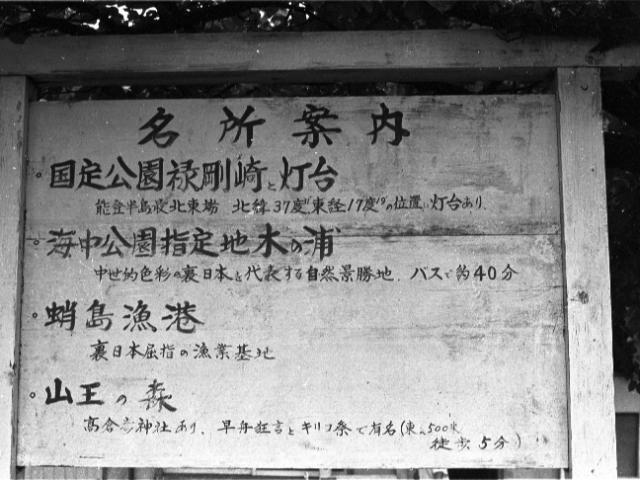 名所案内
。国定公園禄剛崎と灯台
能登半島最北東場 北緯37度 東経17度 の位置 灯台あり
。海中公園指定地木の浦
中世的色彩の裏日本を代表する自然景勝地. バスで約40分
。蛸島漁港
裏日本屈指の漁業基地
。山王の森
高倉彦神社あり、早舟狂言とキリコ祭で有名(東へ500米
徒歩5分)